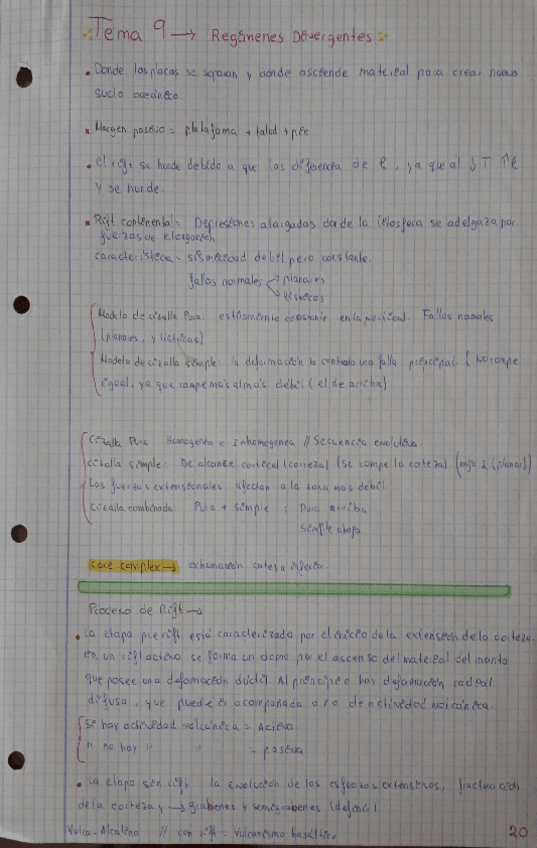 Tema 9 → Regímenes Divergentes
• Donde las placas se separan y donde asciende material para crear nuevo
suelo oceánico.
• Margen pasivo = plataforma + talud + pie
• el rift se hunde debido a que las diferencia de ρ, ya que al ↓T ↑ρ
y se hunde.
• Rift continental: Depresiones alargadas donde la litosfera se adelgaza por
fuerzas de elongación
característica = sismicidad débil pero constante.
fallas normales planares
lístricas
Modelo de cizalla Pura: estiramiento constante en la vertical. Fallas normales
(planares, y lístricas)
Modelo de cizalla simple: la deformación la controla una falla principal. (No rompe
igual, ya que rompe más al más débil (el de arriba)
cizalla Pura Homogenea o Inhomogenea // Secuencia evolutiva.
cizalla simple: De alcance cortical (corteza) (se rompe la corteza)
Las fuerzas extensionales afectan a la zona más débil
cizalla combinada: Pura + simple: Pura arriba
simple abajo
core complex → exhumación corteza inferior.
Proceso de Rift →
• La etapa pre rift está caracterizada por el inicio de la extensión de la corteza.
en un rift activo se forma un domo por el ascenso del material del manto
que posee una deformación dúctil. Al principio hay deformación
difusa, que puede ir acompañada o no de actividad volcánica.
Si hay actividad volcánica = Activa.
" no hay " " = pasiva
• La etapa sin rift la evolución de los esfuerzos extensivos, fracturación
de la corteza y → grabenes y semigrabenes
Volca-Alcalino // con rift = vulcanismo basáltico
20